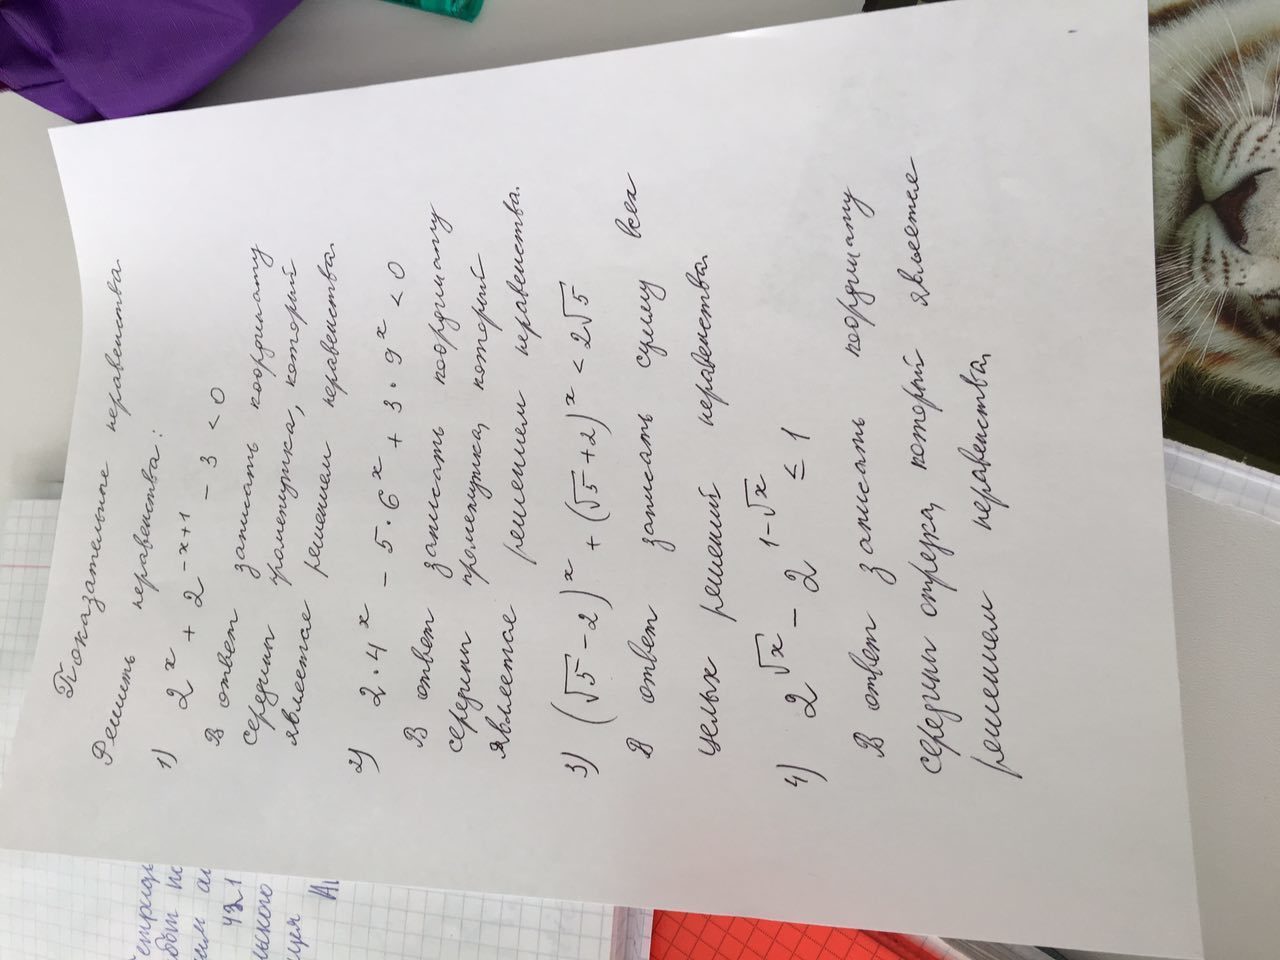 Показательные неравенства.
Решить неравенства:
1) 2^x + 2^{-x+1} - 3 < 0
В ответ записать координату
середины промежутка, который
является решением неравенства.
2) 2 · 4^x - 5 · 6^x + 3 · 9^x < 0
В ответ записать координату
середины промежутка, который
является решением неравенства.
3) (√5 - 2)^x + (√5 + 2)^x < 2√5
В ответ записать сумму всех
целых решений неравенства.
4) 2^{√x} - 2^{1-√x} ≤ 1
В ответ записать координату
середины отрезка, который является
решением неравенства.
421